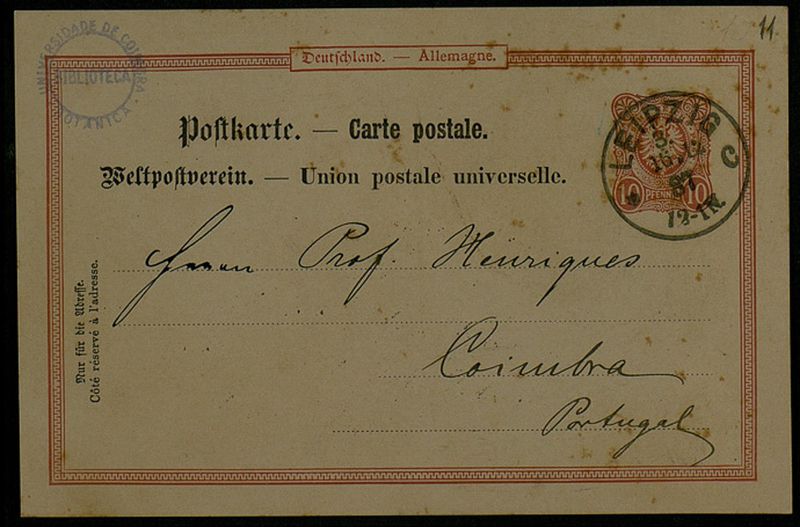 11
UNIVERSIDADE DE COIMBRA
BIBLIOTECA
BOTANICA
Deutschland. — Allemagne.
Postkarte. — Carte postale.
Weltpostverein. — Union postale universelle.
LEIPZIG C
87
12-1N.
10 PFENNIG 10
Herrn Prof. Henriques
Coimbra
Portugal
Nur für die Adresse.
Côté réservé à l'adresse.